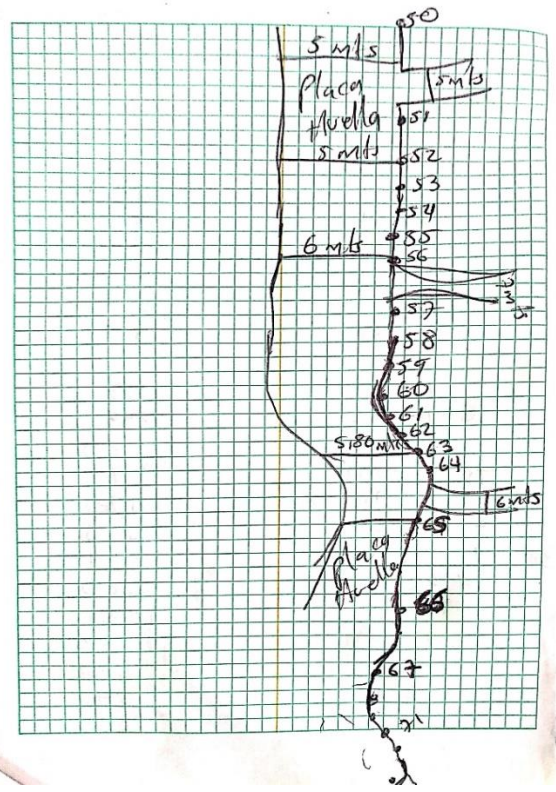 50
5 mts
5mts
Placa
Huella
51
5 mts
52
53
54
55
6 mts
56
57
58
59
60
61
62
5,80 mts
63
64
6mts
65
Placa
Huella
66
67
71